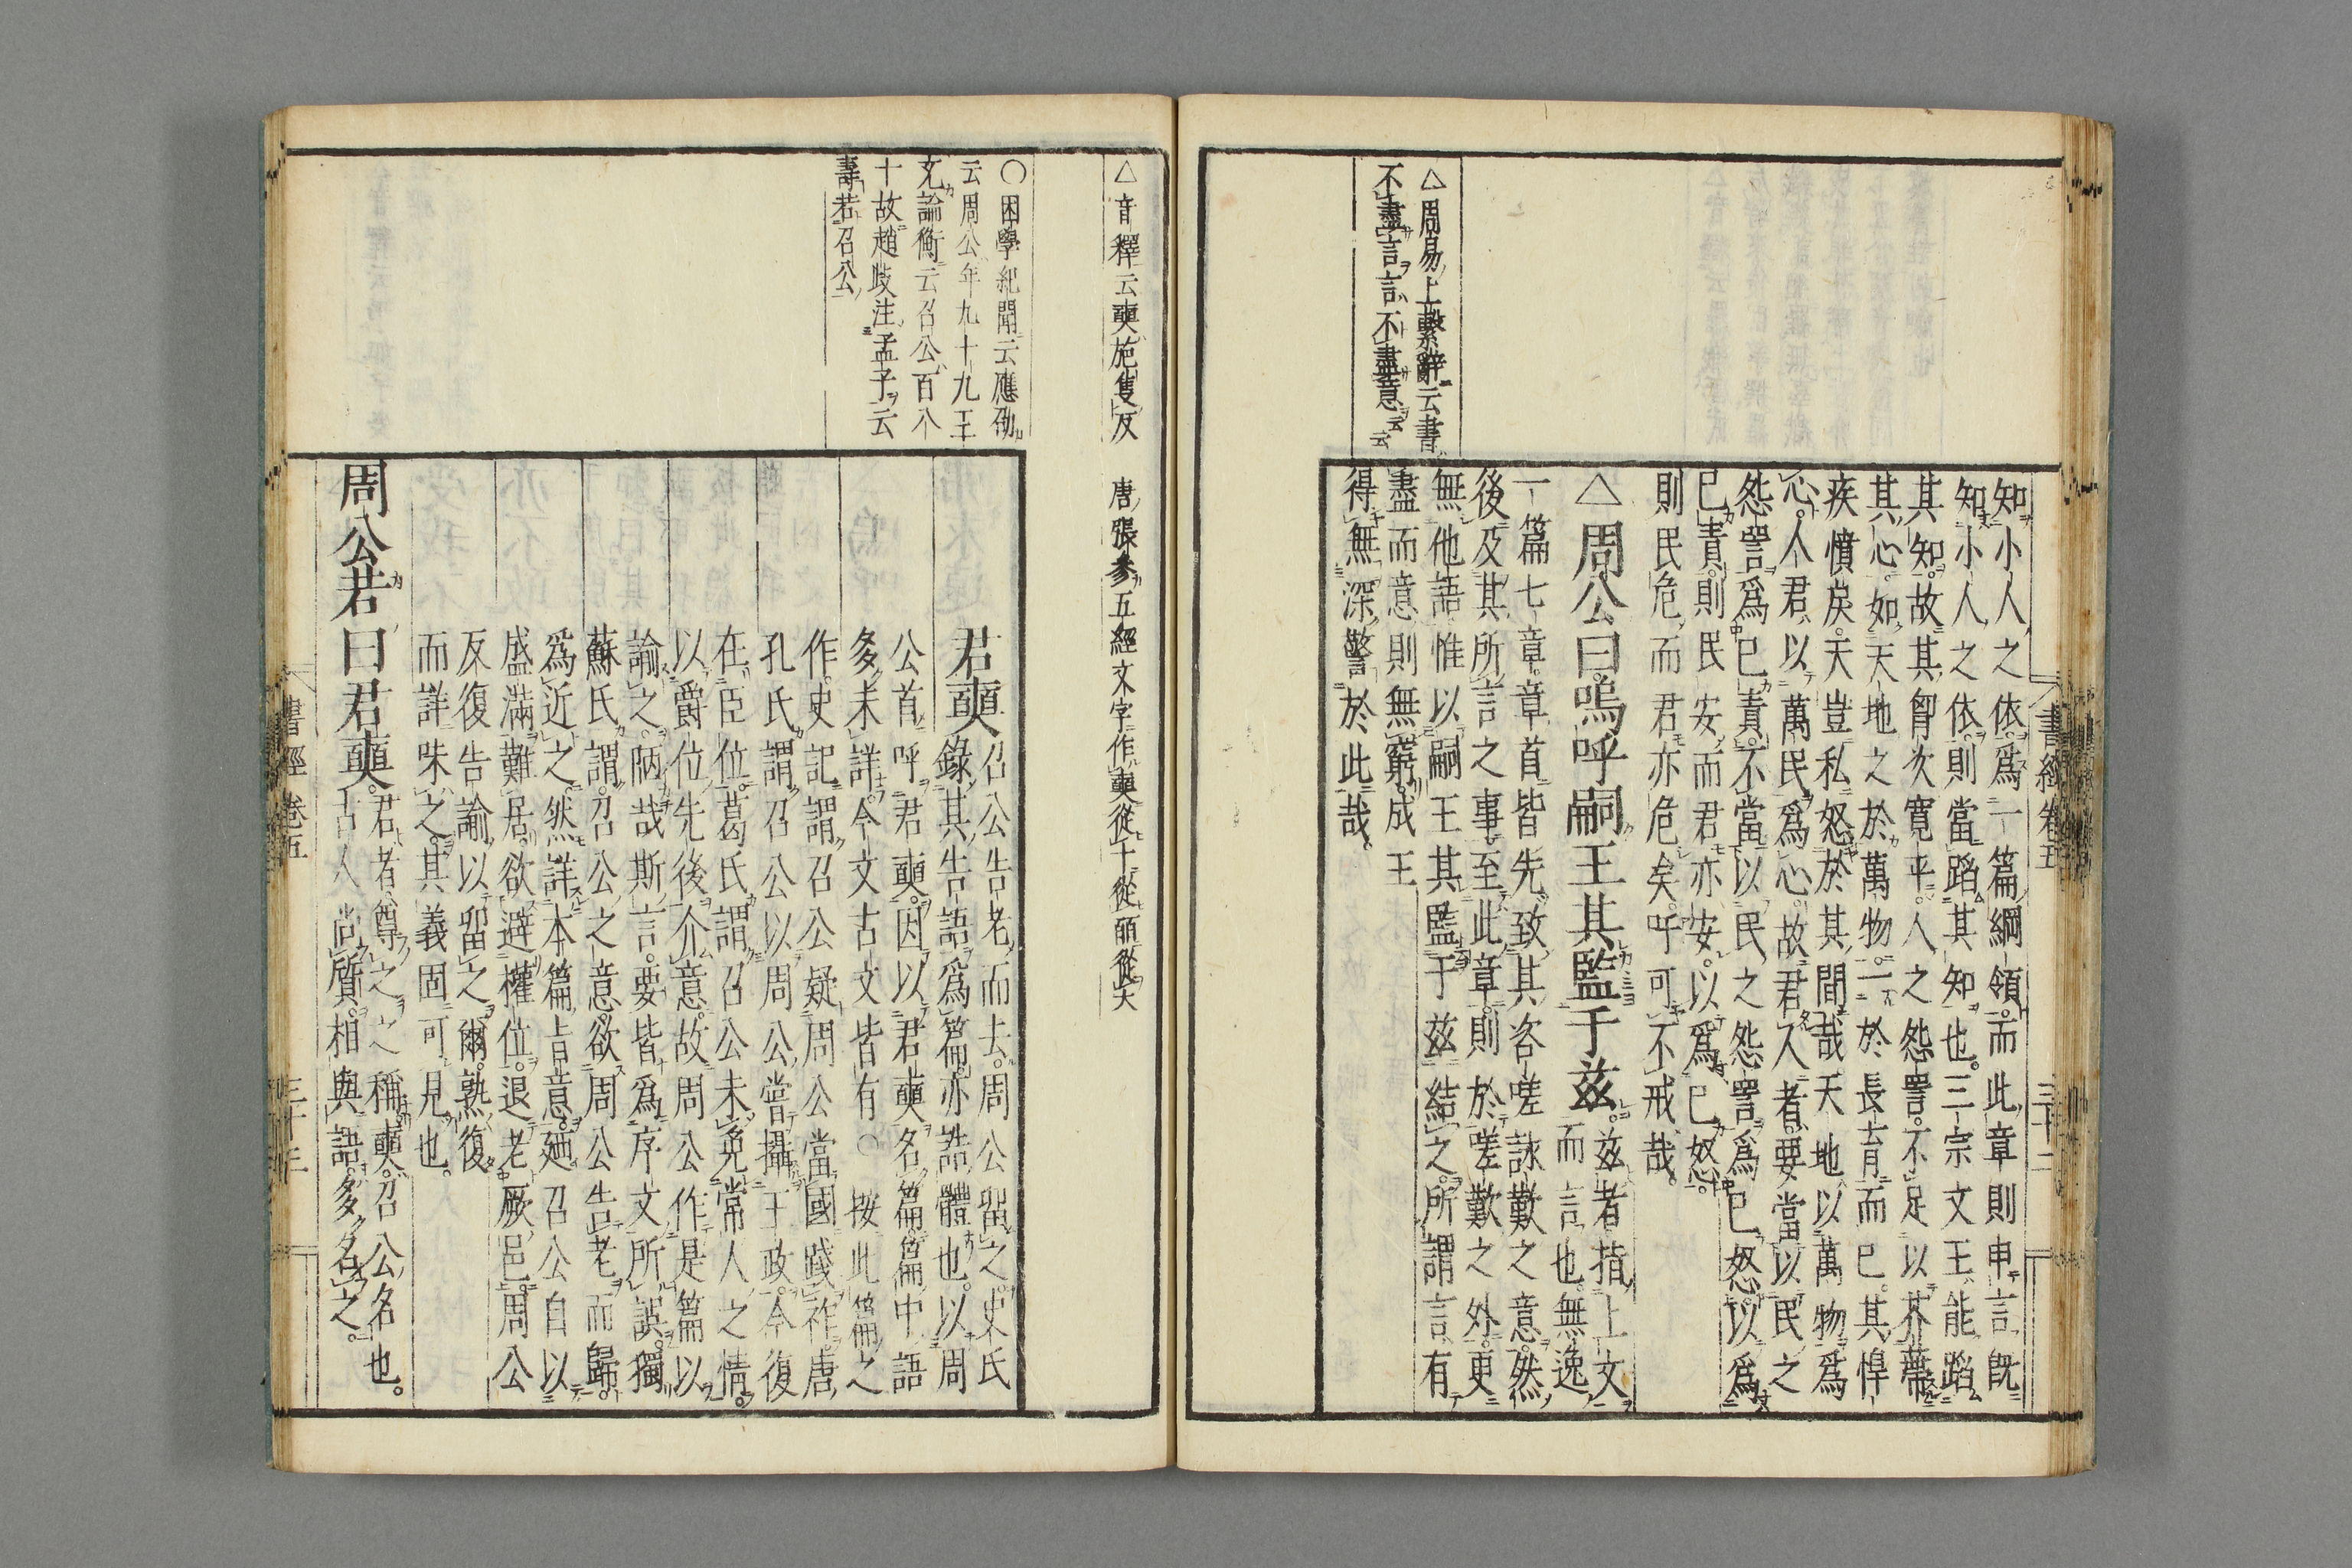 △周易上繫辭云書
不盡言言不盡意云云
知小人之依爲一篇綱領而此章則申言既
知小人之依則當蹈其知也三宗文王能蹈
其知故其胷次寛平人之怨詈不足以芥蔕
其心如天地之於萬物一於長育而已其悍
疾憤戾天豈私怒於其間哉天地以萬物爲
心人君以萬民爲心故君人者要當以民之
怨詈爲己責不當以民之怨詈爲己怒以爲
己責則民安而君亦安以爲己怒
則民危而君亦危矣吁可不戒哉
△周公曰嗚呼嗣王其監于茲茲者指上文
而言也無逸
一篇七章章首皆先致其咨嗟詠歎之意然
後及其所言之事至此章則於嗟歎之外更
無他語惟以嗣王其監于茲結之所謂言有
盡而意則無窮成王
得無深警於此哉
書經卷五
三十二
△音釋云奭施隻反 唐張參五經文字作奭從十從皕從大
○困學紀聞云應劭
云周公年九十九王
充論衡云召公百八
十故趙歧注孟子云
壽若召公
君奭召公告老而去周公留之史氏
錄其告語爲篇亦誥體也以周
公首呼君奭因以君奭名篇篇中語
多未詳今文古文皆有○按此篇之
作史記謂召公疑周公當國踐祚唐
孔氏謂召公以周公嘗攝王政今復
在臣位葛氏謂召公未免常人之情
以爵位先後介意故周公作是篇以
諭之陋哉斯言要皆爲序文所誤獨
蘇氏謂召公之意欲周公告老而歸
爲近之然詳本篇旨意廼召公自以
盛滿難居欲避權位退老厥邑周公
反復告諭以留之爾熟復
而詳味之其義固可見也
周公若曰君奭君者尊之之稱奭召公名也
古人尚質相與語多名之
書經 卷五
三十三